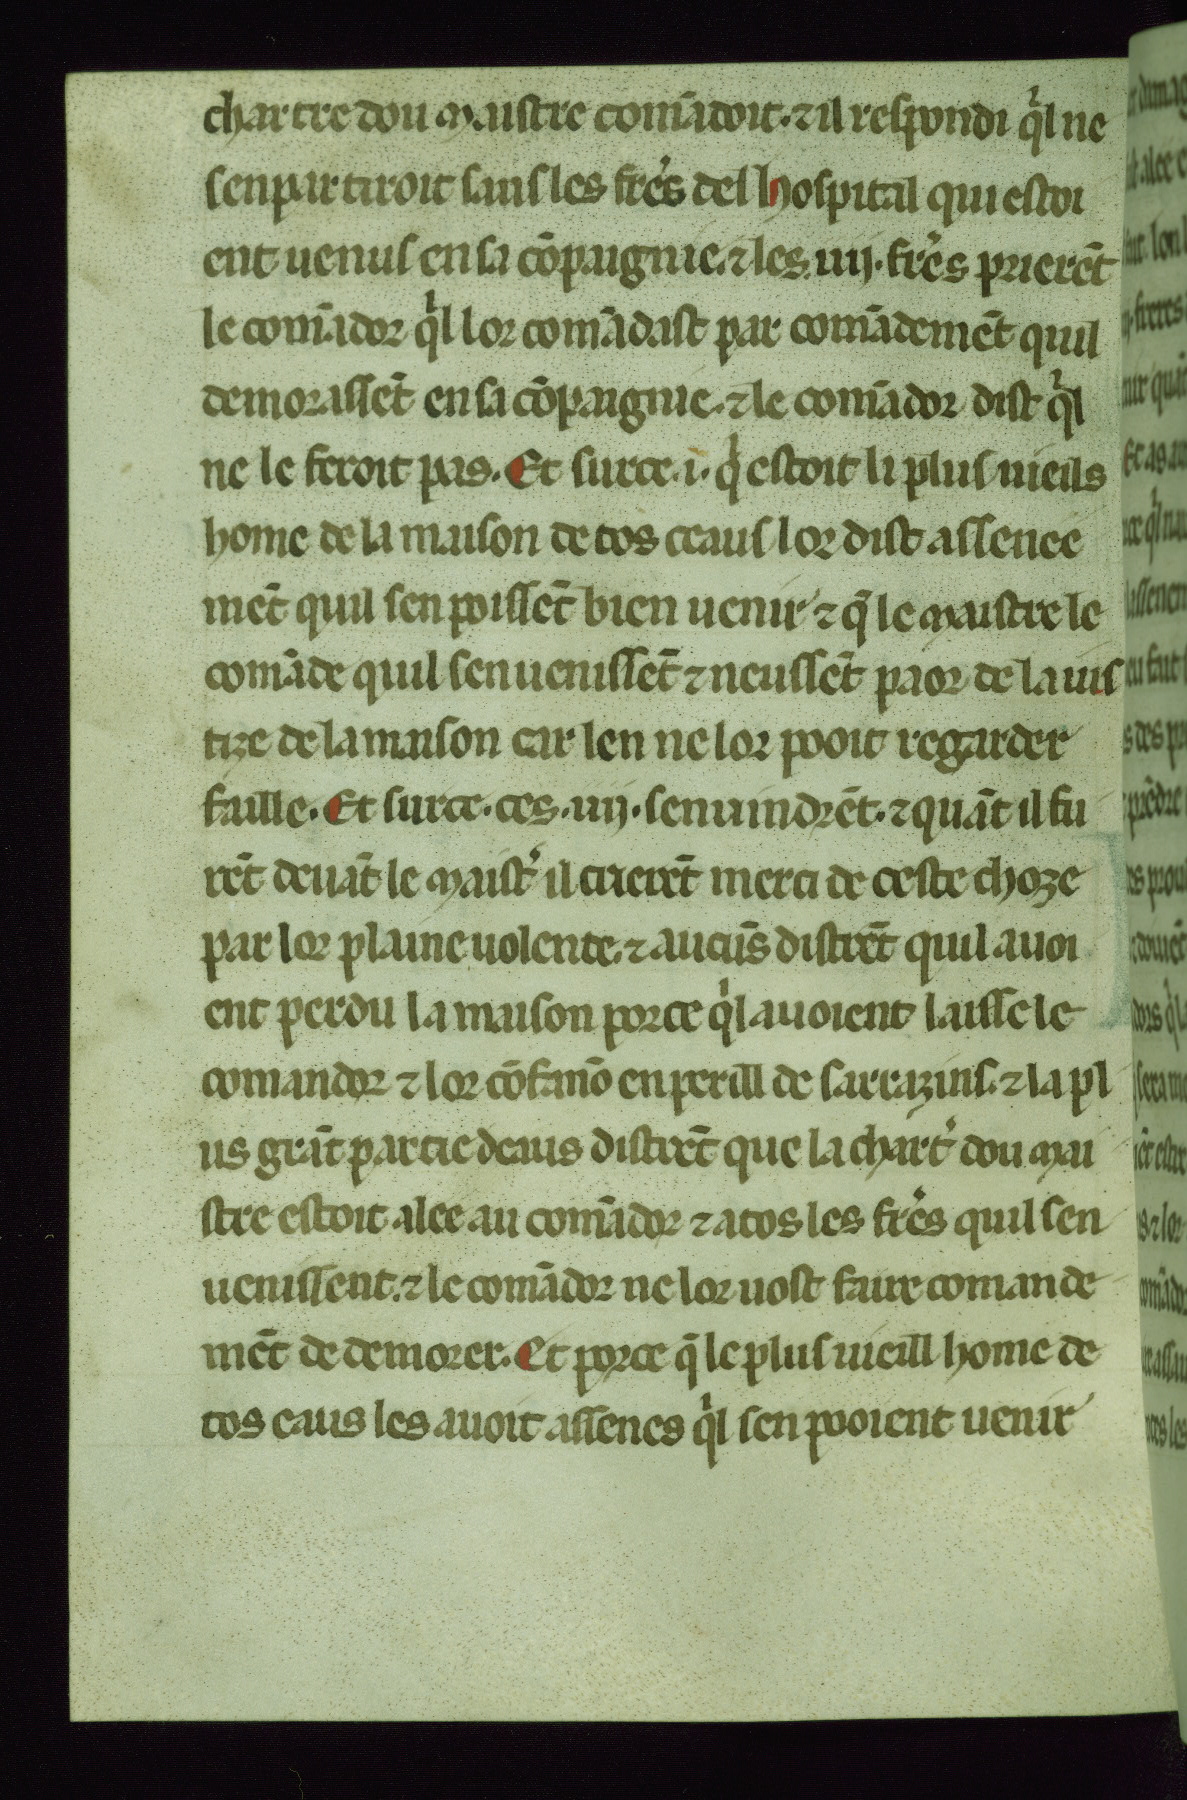 chartre dou maistre comādoit. ⁊ il respondi qͥl ne
senpartiroit sans les frēs del hospital qui estoi
ent uenus en sa cōpaignie. ⁊ les .iiij. frēs prierēt
le comādor qͥl lor comādast par comādemēt quil
demorassēt en sa cōpaignie. ⁊ le comādor dist qͥl
ne le feroit pas. Et surce .i. qͥ estoit li plus uieils
home de la maison de tos ceaus lor dist assenee
mēt quil sen poissēt bien uenir ⁊ q̄ le maistre le
comāde quil sen uenissēt ⁊ neussēt paor de la uis
tize de la maison car len ne lor pooit regarder
faille. Et surce. ces .iiij. sen uindrēt. ⁊ quāt il fu
rēt deuāt le maist̉ il crierēt merci de ceste choze
par lor plaine uolente. ⁊ aucūs distrēt quil auoi
ent perdu la maison porce qͥl auoient laisse le
comandor ⁊ lor cōfanō en perill de sarrazins. ⁊ la pl
us grāt partie deaus distrēt que la chart̉ dou mai
stre estoit alee au comādor ⁊ a tos les frēs quil sen
uenissent. ⁊ le comādor ne lor uost faire comande
mēt de demorer. Et porce q̄ le plus uieill home de
tos eaus les auoit assenes qͥl sen pooient uenir